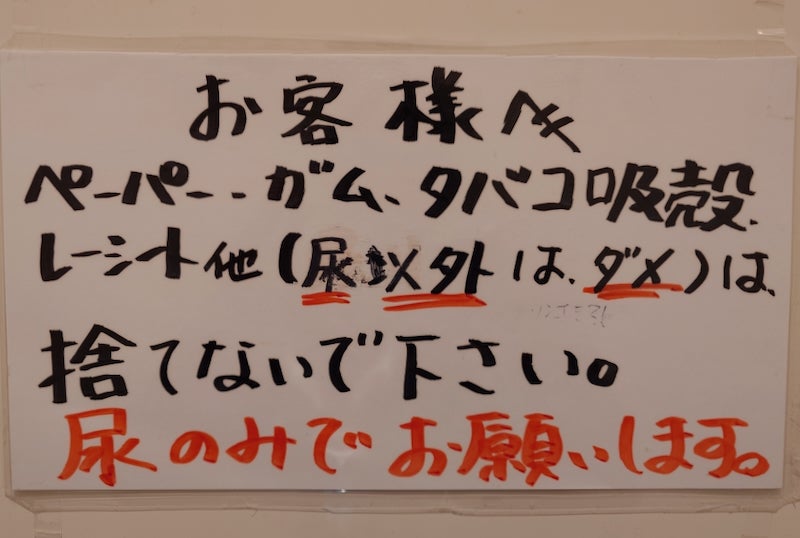 お客様へ
ペーパー、ガム、タバコ吸殻、
レーシート他(尿以外は、ダメ)は、
捨てないで下さい。
尿のみでお願いします。